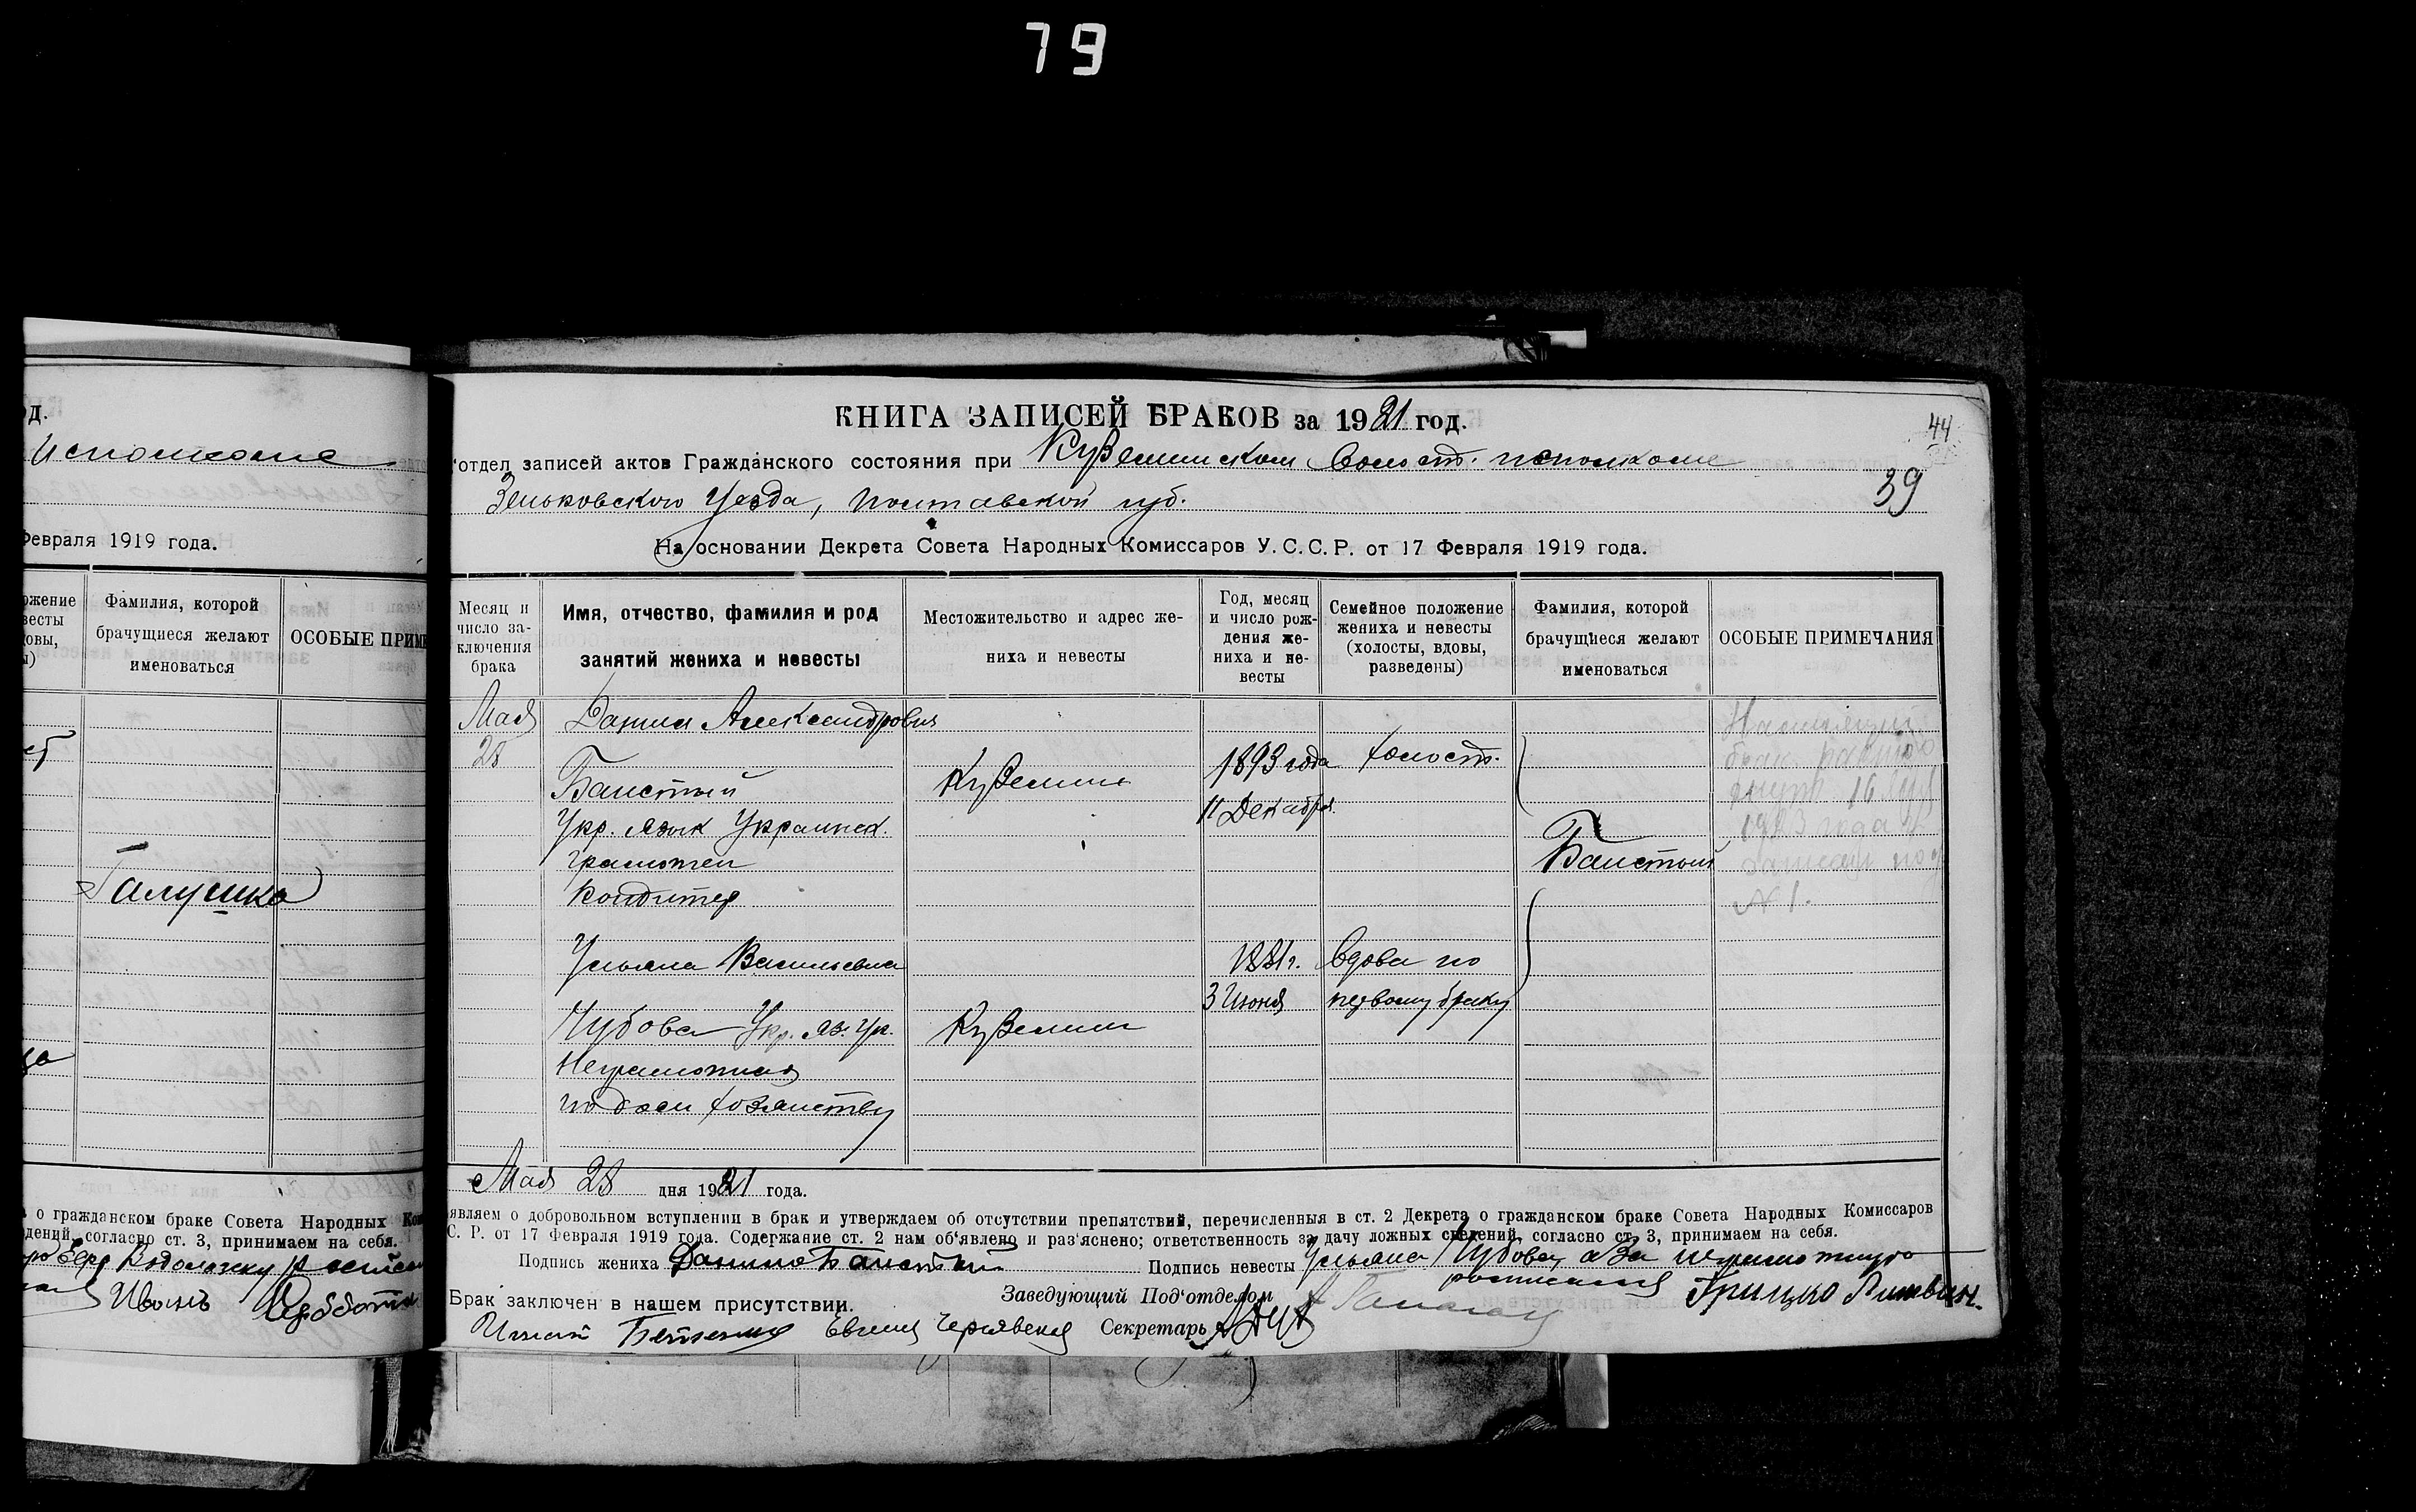 79
д.
Исполкоме
Февраля 1919 года.
Фамилия, которой
брачущиеся желают
именоваться
ОСОБЫЕ ПРИМ
Галушко
о гражданском браке Совета Народных Ком
дений, согласно ст. 3, принимаем на себя.
Иванъ
КНИГА ЗАПИСЕЙ БРАКОВ за 1921 год.
44
отдел записей актов Гражданского состояния при Куземинском Волост. исполкоме
39
Зеньковского Уезда, Полтавской губ.
На основании Декрета Совета Народных Комиссаров У.С.С.Р. от 17 Февраля 1919 года.
Месяц и число заключения брака
Имя, отчество, фамилия и род занятий жениха и невесты
Местожительство и адрес жениха и невесты
Год, месяц и число рождения жениха и невесты
Семейное положение жениха и невесты (холосты, вдовы, разведены)
Фамилия, которой брачущиеся желают именоваться
ОСОБЫЕ ПРИМЕЧАНИЯ
Мая
28
Данил Александрович
Баистый
Укр. язык Украинск.
грамотен
Кондитер
Куземин
1893 года
11 Декабря
холост.
Баистый
Настоящий
брак
16
1923 года
записан под
№ 1.
Ульяна Васильевна
Чубова Укр. яз. Ук.
Неграмотная
по дом хозяйству
Куземин
1881 г.
3 Июня
Вдова по
первому браку
Мая 28 дня 1921 года.
являем о добровольном вступлении в брак и утверждаем об отсутствии препятствий, перечисленныя в ст. 2 Декрета о гражданском браке Совета Народных Комиссаров
С. Р. от 17 Февраля 1919 года. Содержание ст. 2 нам об'явлено и раз'яснено; ответственность за дачу ложных сведений, согласно ст. 3, принимаем на себя.
Подпись жениха Данило Баистый Подпись невесты Ульяна Чубова, а За неграмотную
росписался Грицко Литвин.
Брак заключен в нашем присутствии. Заведующий Под'отделом
Евгения Секретарь